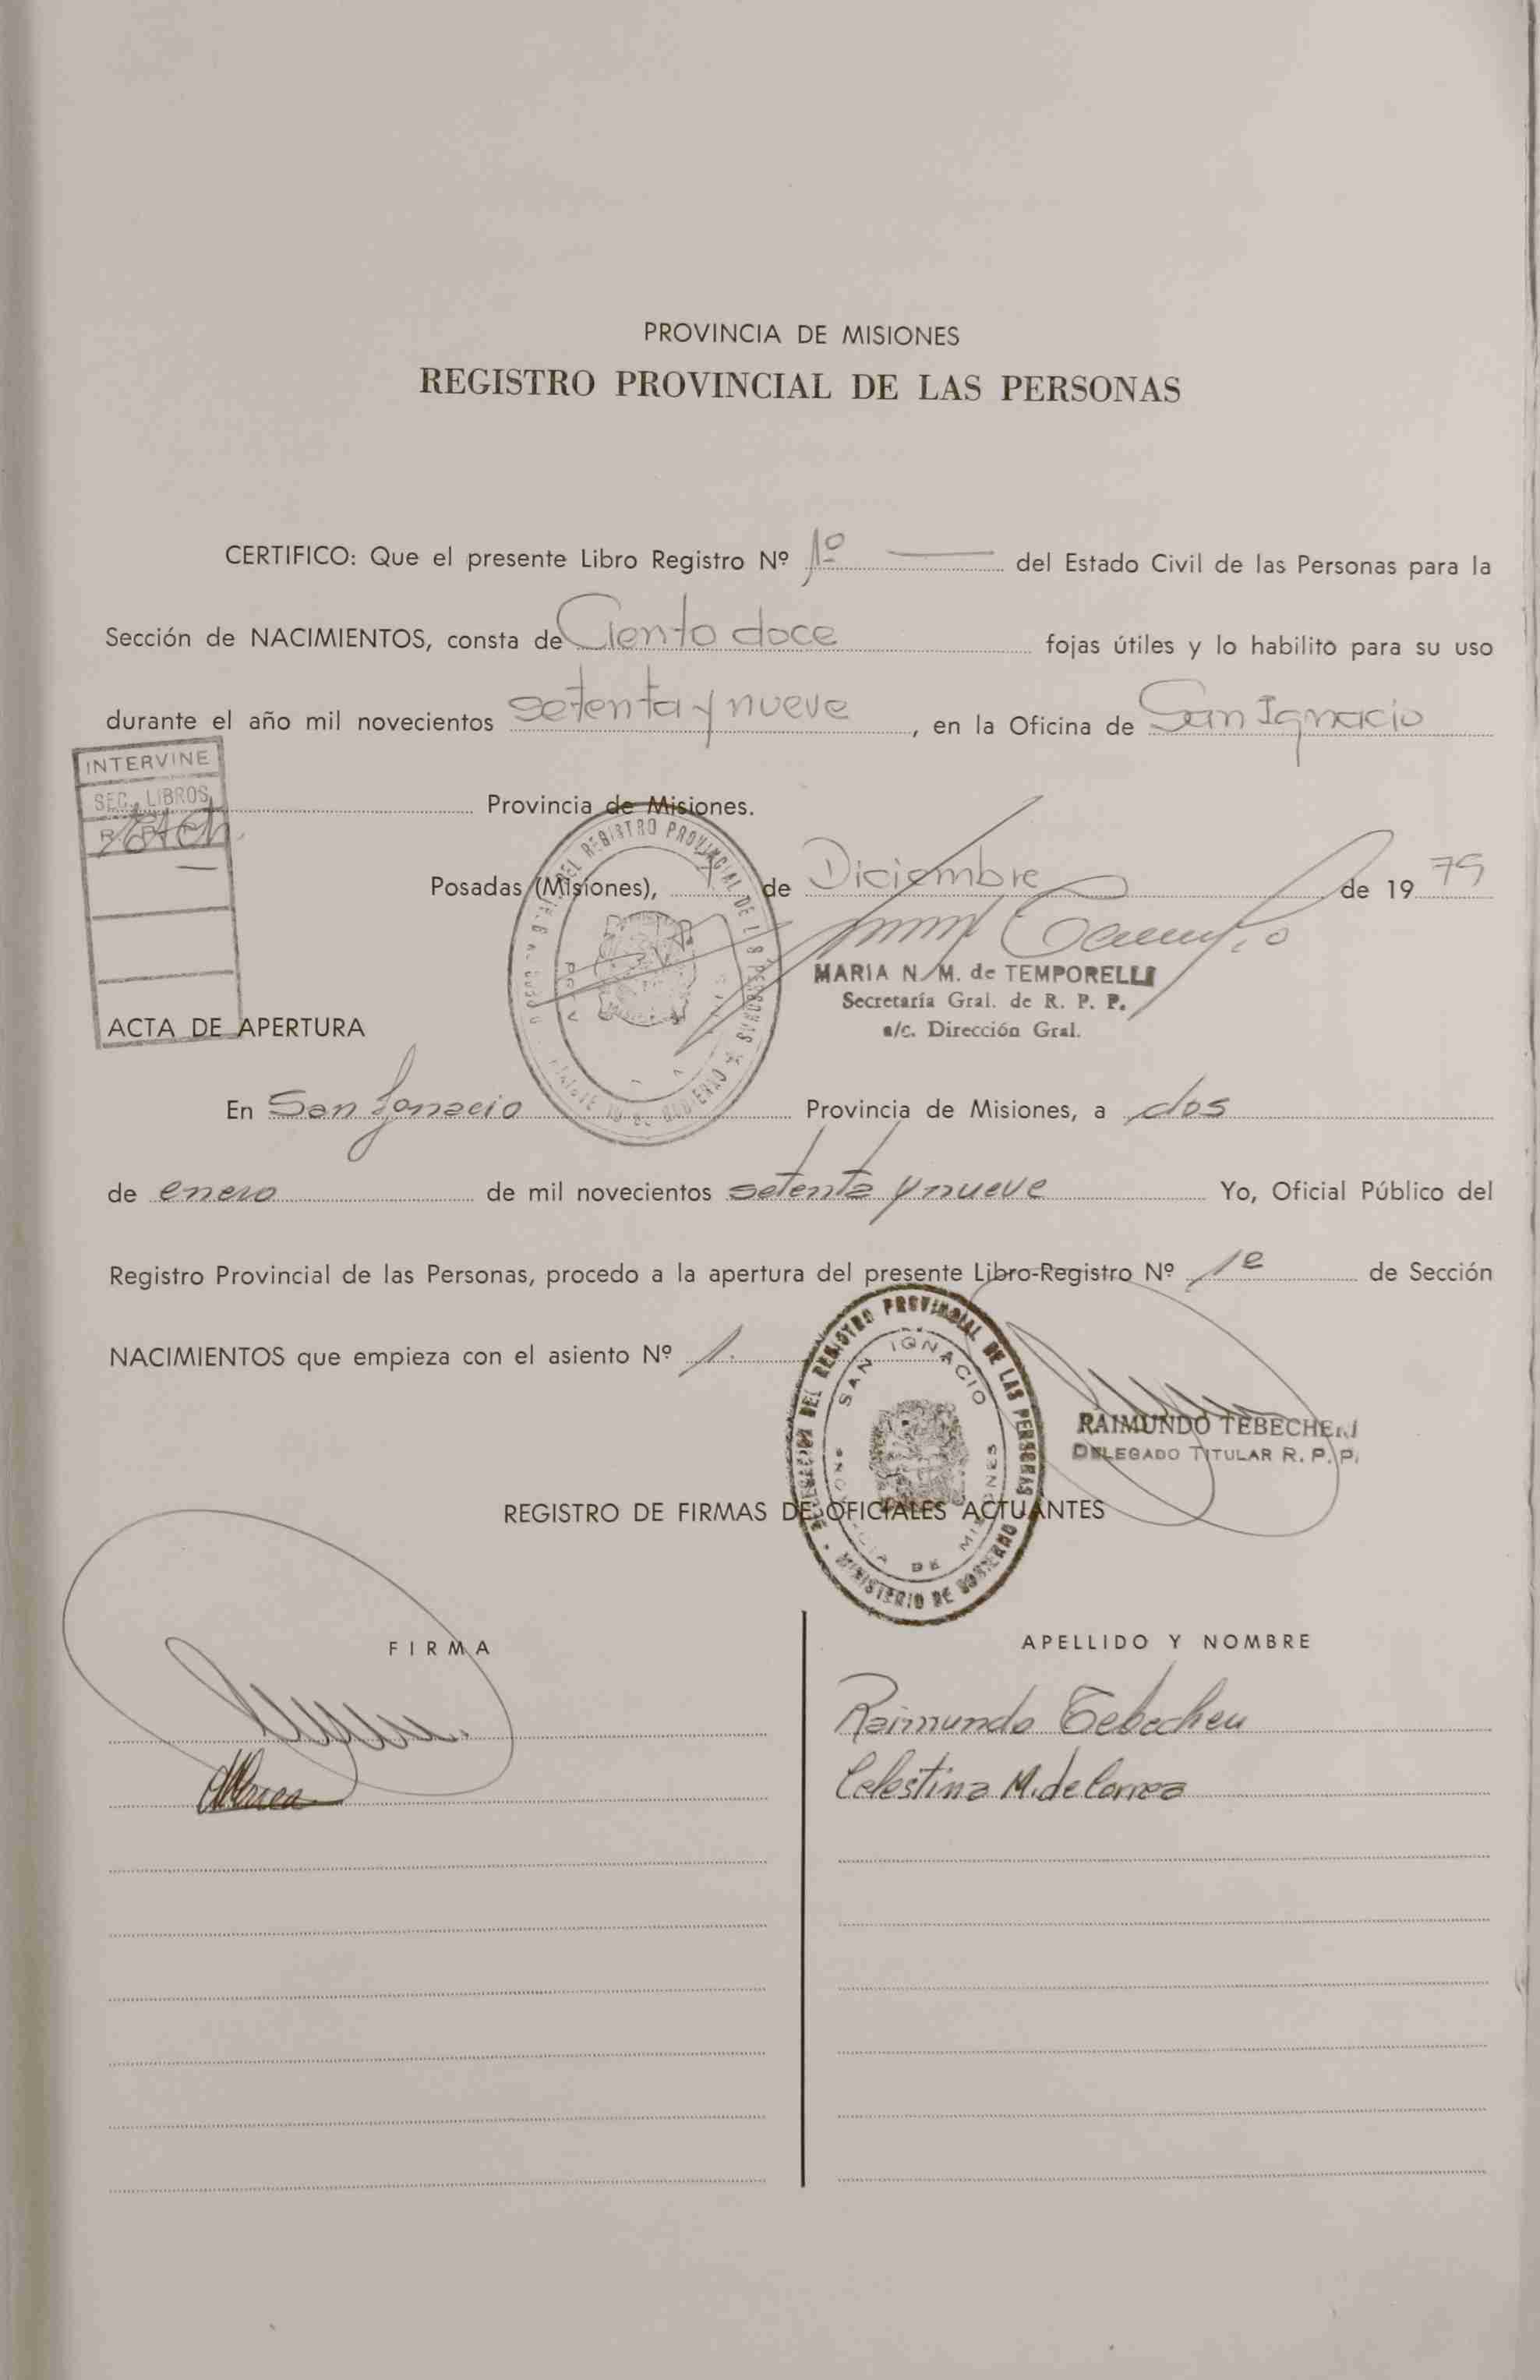 PROVINCIA DE MISIONES
REGISTRO PROVINCIAL DE LAS PERSONAS
CERTIFICO: Que el presente Libro Registro Nº 1º del Estado Civil de las Personas para la
Sección de NACIMIENTOS, consta de Ciento doce fojas útiles y lo habilito para su uso
durante el año mil novecientos setenta y nueve, en la Oficina de San Ignacio
INTERVINE
SEC. LIBROS
Provincia de Misiones.
Posadas (Misiones), de Diciembre de 1979
MARIA N. M. de TEMPORELLI
Secretaría Gral. de R. P. P.
a/c. Dirección Gral.
ACTA DE APERTURA
En San Ignacio Provincia de Misiones, a dos
de enero de mil novecientos setenta y nueve Yo, Oficial Público del
Registro Provincial de las Personas, procedo a la apertura del presente Libro-Registro Nº 1º de Sección
NACIMIENTOS que empieza con el asiento Nº 1.
DELEGACION DEL REGISTRO PROVINCIAL DE LAS PERSONAS
SAN IGNACIO
PROVINCIA DE MISIONES
MINISTERIO DE GOBIERNO
RAIMUNDO TEBECHERI
DELEGADO TITULAR R. P. P.
REGISTRO DE FIRMAS DE OFICIALES ACTUANTES
FIRMA APELLIDO Y NOMBRE
Raimundo
Celestina M. de Correa